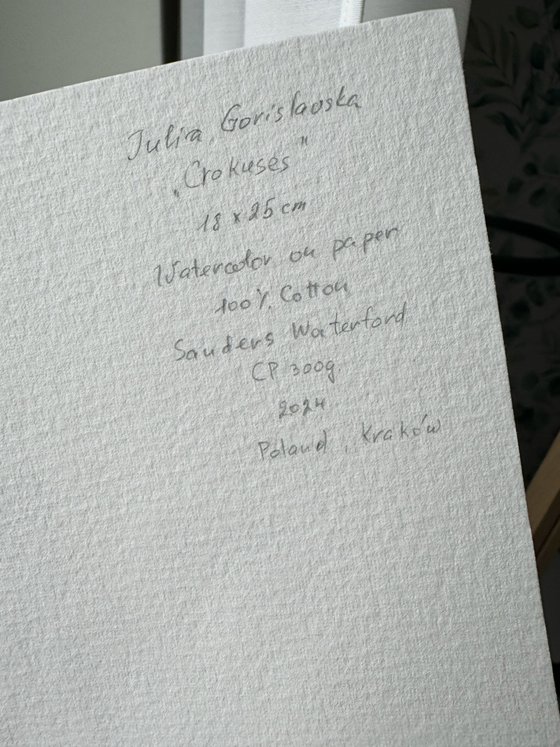 Julia Gorislavska
„Crokuses"
18 x 25 cm
Watercolor on paper
100% Cotton
Sauders Waterford
CP 300g
2024
Poland, Kraków